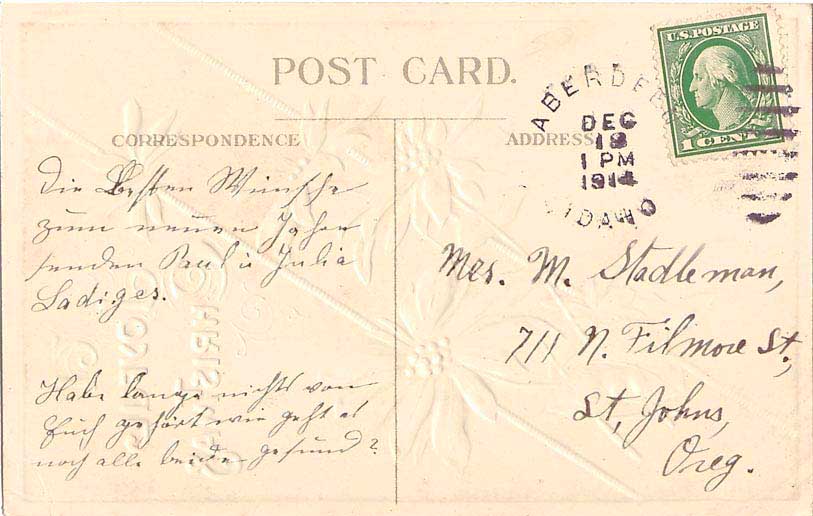 POST CARD.
CORRESPONDENCE
ADDRESS
U.S. POSTAGE
1 CENT
ABERDEEN
DEC
18
1 PM
1914
IDAHO
Die Besten Wünsche
zum neuen Jahre
senden Paul u Julia
Ladiges.
Habe lange nichts von
Euch gehört wie geht es
noch alle beide gesund?
Mrs. M. Stadleman,
711 N. Filmore St.,
St, Johns,
Oreg.